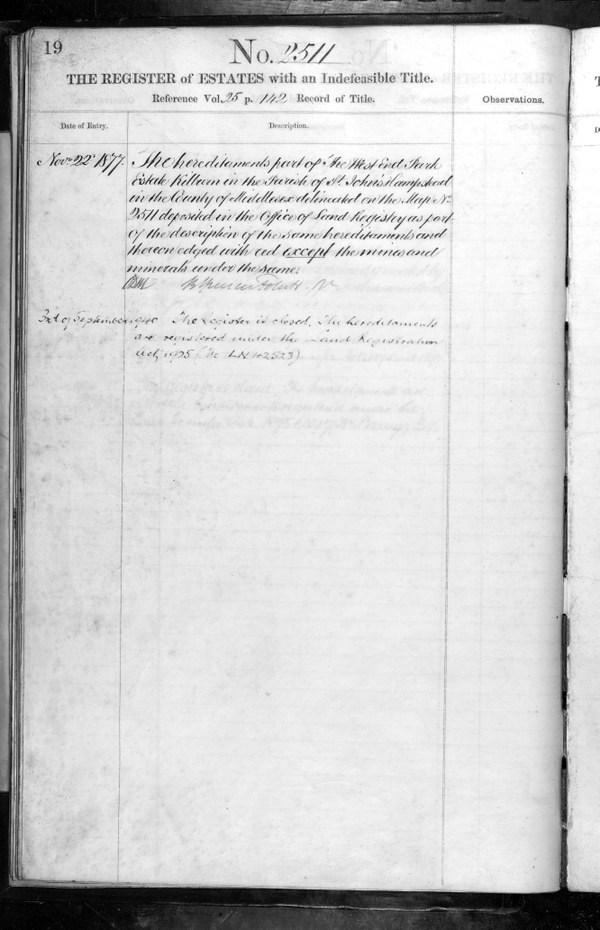 19
No. 2511
THE REGISTER of ESTATES with an Indefeasible Title.
Reference Vol. 25 p. 142 Record of Title.
Observations.
Date of Entry.
Description.
Novr. 22d 1877. The hereditaments part of The West End Park
Estate Kilburn in the Parish of St John's Hampstead
in the County of Middlesex delineated on the Map No
2511 deposited in the Office of Land Registry as part
of the description of the same hereditaments and
thereon edged with red except the mines and
minerals under the same.
3rd of September The Register is closed. The hereditaments
are registered under the Land Registration
Act, 1925